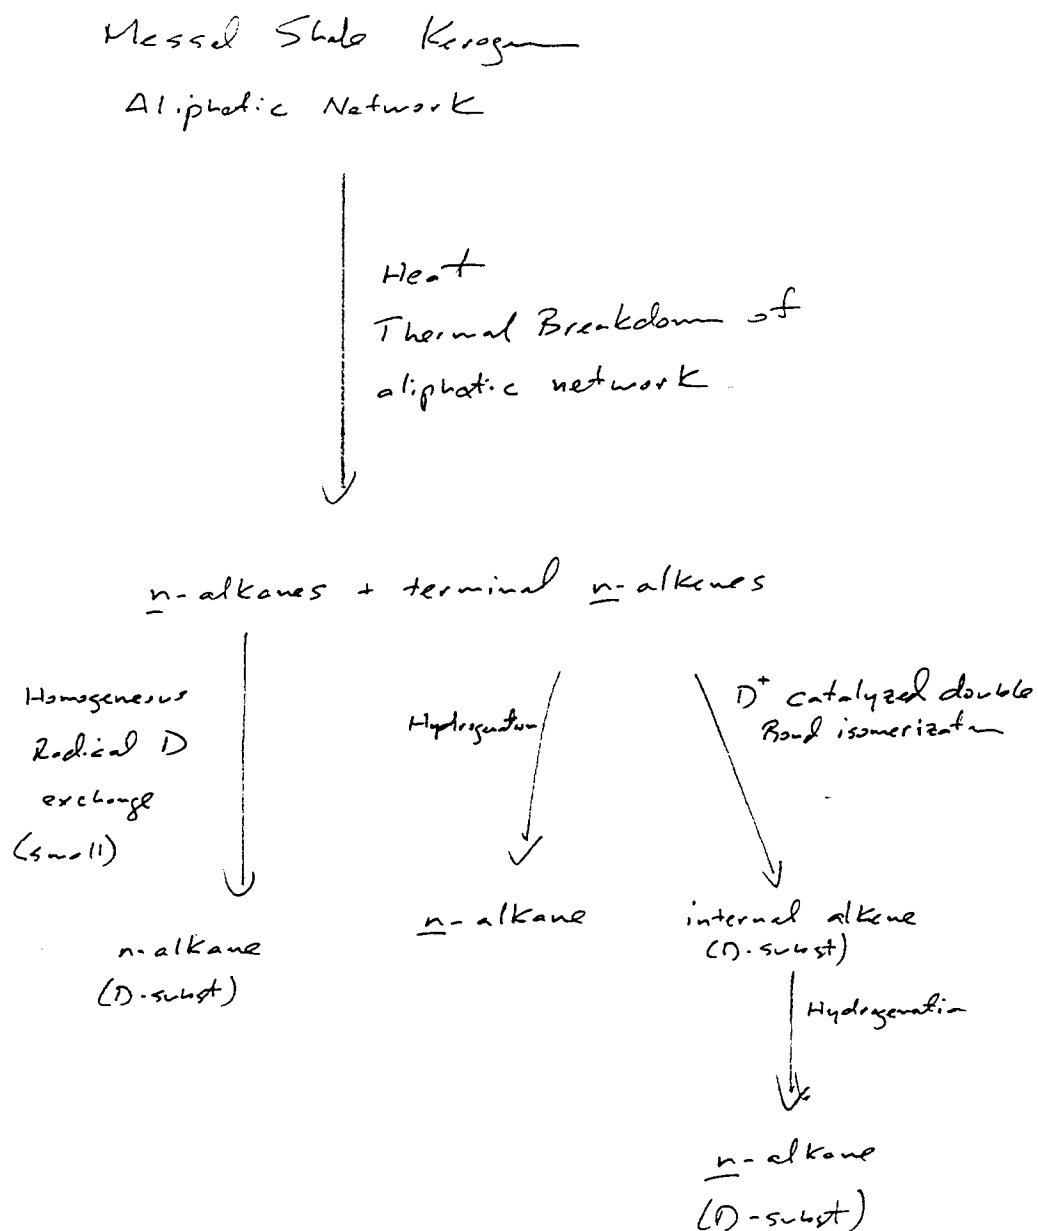 Messel Shale Kerogen
Aliphatic Network
Heat
Thermal Breakdown of
aliphatic network
n-alkanes + terminal n-alkenes
Homogeneous
Radical D
exchange
(small)
n-alkane
(D-subst)
Hydrogenation
n-alkane
D+ catalyzed double
Bond isomerization
internal alkene
(D-subst)
Hydrogenation
n-alkane
(D-subst)